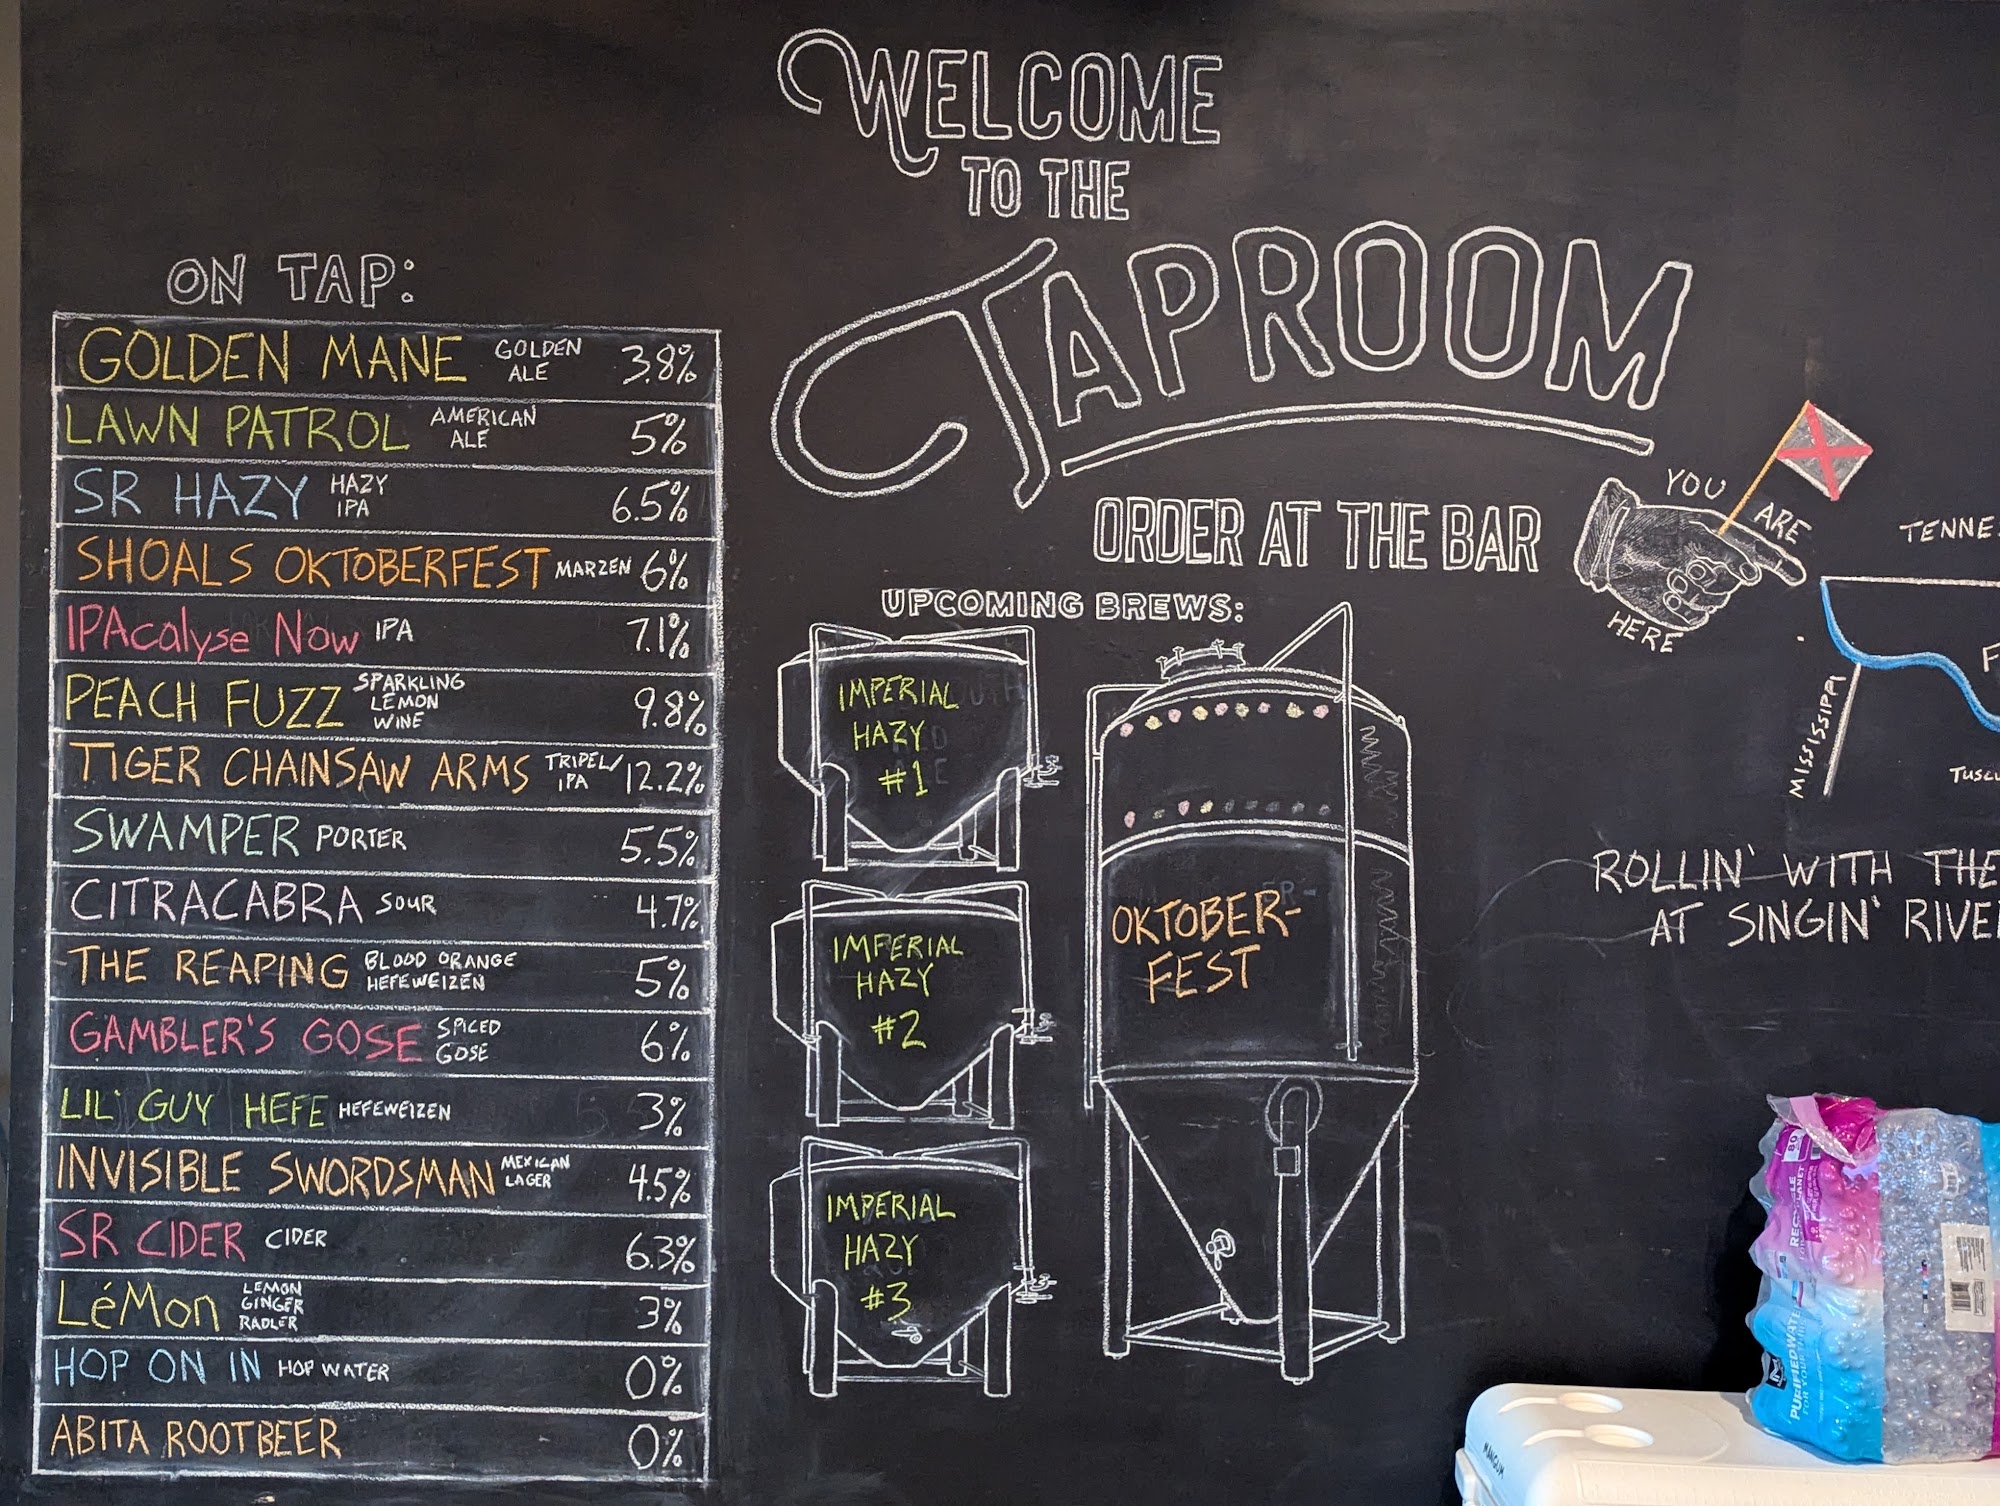 WELCOME
TO THE
TAPROOM
ORDER AT THE BAR
ON TAP:
GOLDEN MANE GOLDEN ALE 3.8%
LAWN PATROL AMERICAN ALE 5%
SR HAZY HAZY IPA 6.5%
SHOALS OKTOBERFEST MARZEN 6%
IPAcalyse Now IPA 7.1%
PEACH FUZZ SPARKLING LEMON WINE 9.8%
TIGER CHAINSAW ARMS TRIPEL/IPA 12.2%
SWAMPER PORTER 5.5%
CITRACABRA SOUR 4.7%
THE REAPING BLOOD ORANGE HEFEWEIZEN 5%
GAMBLER'S GOSE SPICED GOSE 6%
LIL' GUY HEFE HEFEWEIZEN 3%
INVISIBLE SWORDSMAN MEXICAN LAGER 4.5%
SR CIDER CIDER 6.3%
LéMon LEMON GINGER RADLER 3%
HOP ON IN HOP WATER 0%
ABITA ROOTBEER 0%
UPCOMING BREWS:
IMPERIAL
HAZY
#1
IMPERIAL
HAZY
#2
IMPERIAL
HAZY
#3
OKTOBER-
FEST
YOU
ARE
HERE
TENNE
F
MISSISSIPPI
TUSCU
ROLLIN' WITH THE
AT SINGIN' RIVE
PURIFIED WATE
MANGUM